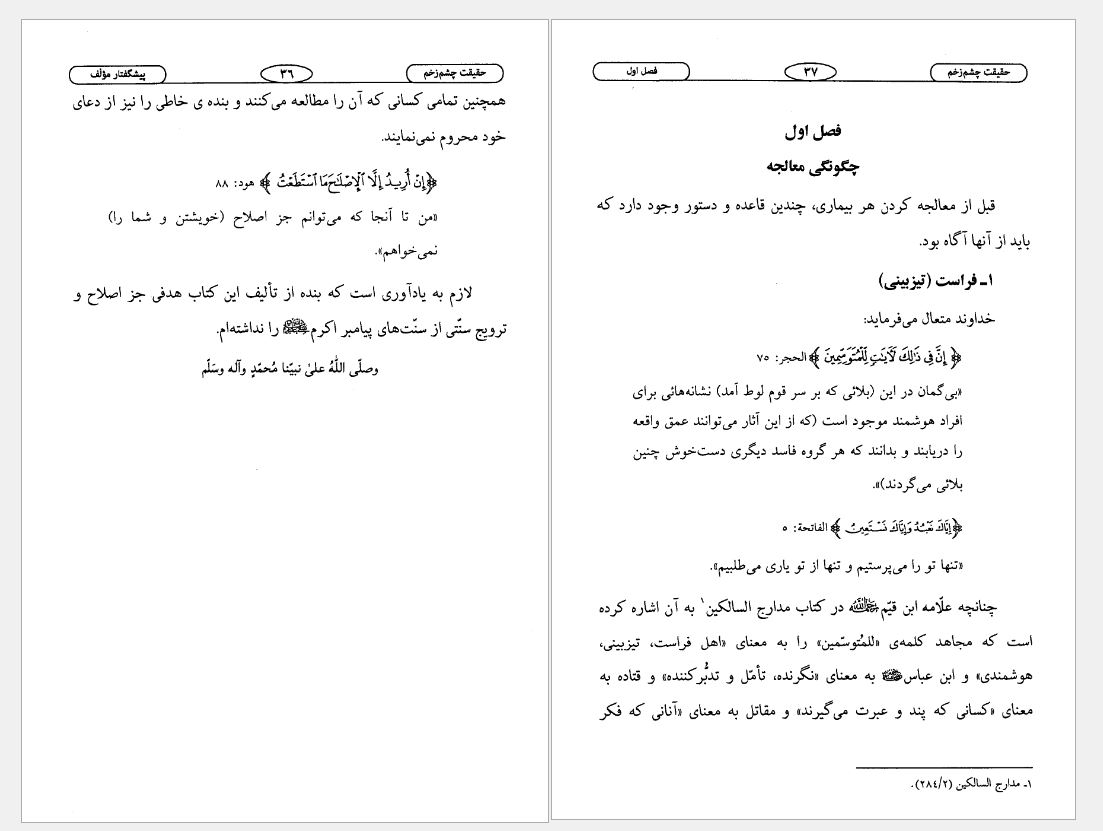 حقیقت چشم‌زخم
۳۶
پیشگفتار مؤلّف
همچنین تمامی کسانی که آن را مطالعه می‌کنند و بنده ی خاطی را نیز از دعای
خود محروم نمی‌نمایند.
﴿إِنْ أُرِيدُ إِلَّا ٱلْإِصْلَٰحَ مَا ٱسْتَطَعْتُ﴾ هود: ۸۸
«من تا آنجا که می‌توانم جز اصلاح (خویشتن و شما را)
نمی‌خواهم».
لازم به یادآوری است که بنده از تألیف این کتاب هدفی جز اصلاح و
ترویج سنّتی از سنّت‌های پیامبر اکرم ﷺ را نداشته‌ام.
وصلّی اللّٰهُ علیٰ نبیّنا مُحمّدٍ وآله وسَلّم
حقیقت چشم‌زخم
۳۷
فصل اول
فصل اول
چگونگی معالجه
قبل از معالجه کردن هر بیماری، چندین قاعده و دستور وجود دارد که
باید از آنها آگاه بود.
۱ـ فراست (تیزبینی)
خداوند متعال می‌فرماید:
﴿إِنَّ فِي ذَٰلِكَ لَآيَٰتٍ لِّلْمُتَوَسِّمِينَ﴾ الحجر: ۷۵
«بی‌گمان در این (بلائی که بر سر قوم لوط آمد) نشانه‌هائی برای
افراد هوشمند موجود است (که از این آثار می‌توانند عمق واقعه
را دریابند و بدانند که هر گروه فاسد دیگری دست‌خوش چنین
بلائی می‌گردند)».
﴿إِيَّاكَ نَعْبُدُ وَإِيَّاكَ نَسْتَعِينُ﴾ الفاتحة: ۵
«تنها تو را می‌پرستیم و تنها از تو یاری می‌طلبیم».
چنانچه علّامه ابن قیّم در کتاب مدارج السالکین۱ به آن اشاره کرده
است که مجاهد کلمه‌ی «للمُتوسّمین» را به معنای «اهل فراست، تیزبینی،
هوشمندی» و ابن عباس به معنای «نگرنده، تأمّل و تدبُّرکننده» و قتاده به
معنای «کسانی که پند و عبرت می‌گیرند» و مقاتل به معنای «آنانی که فکر
۱ـ مدارج السالکین (۲۸۴/۲).